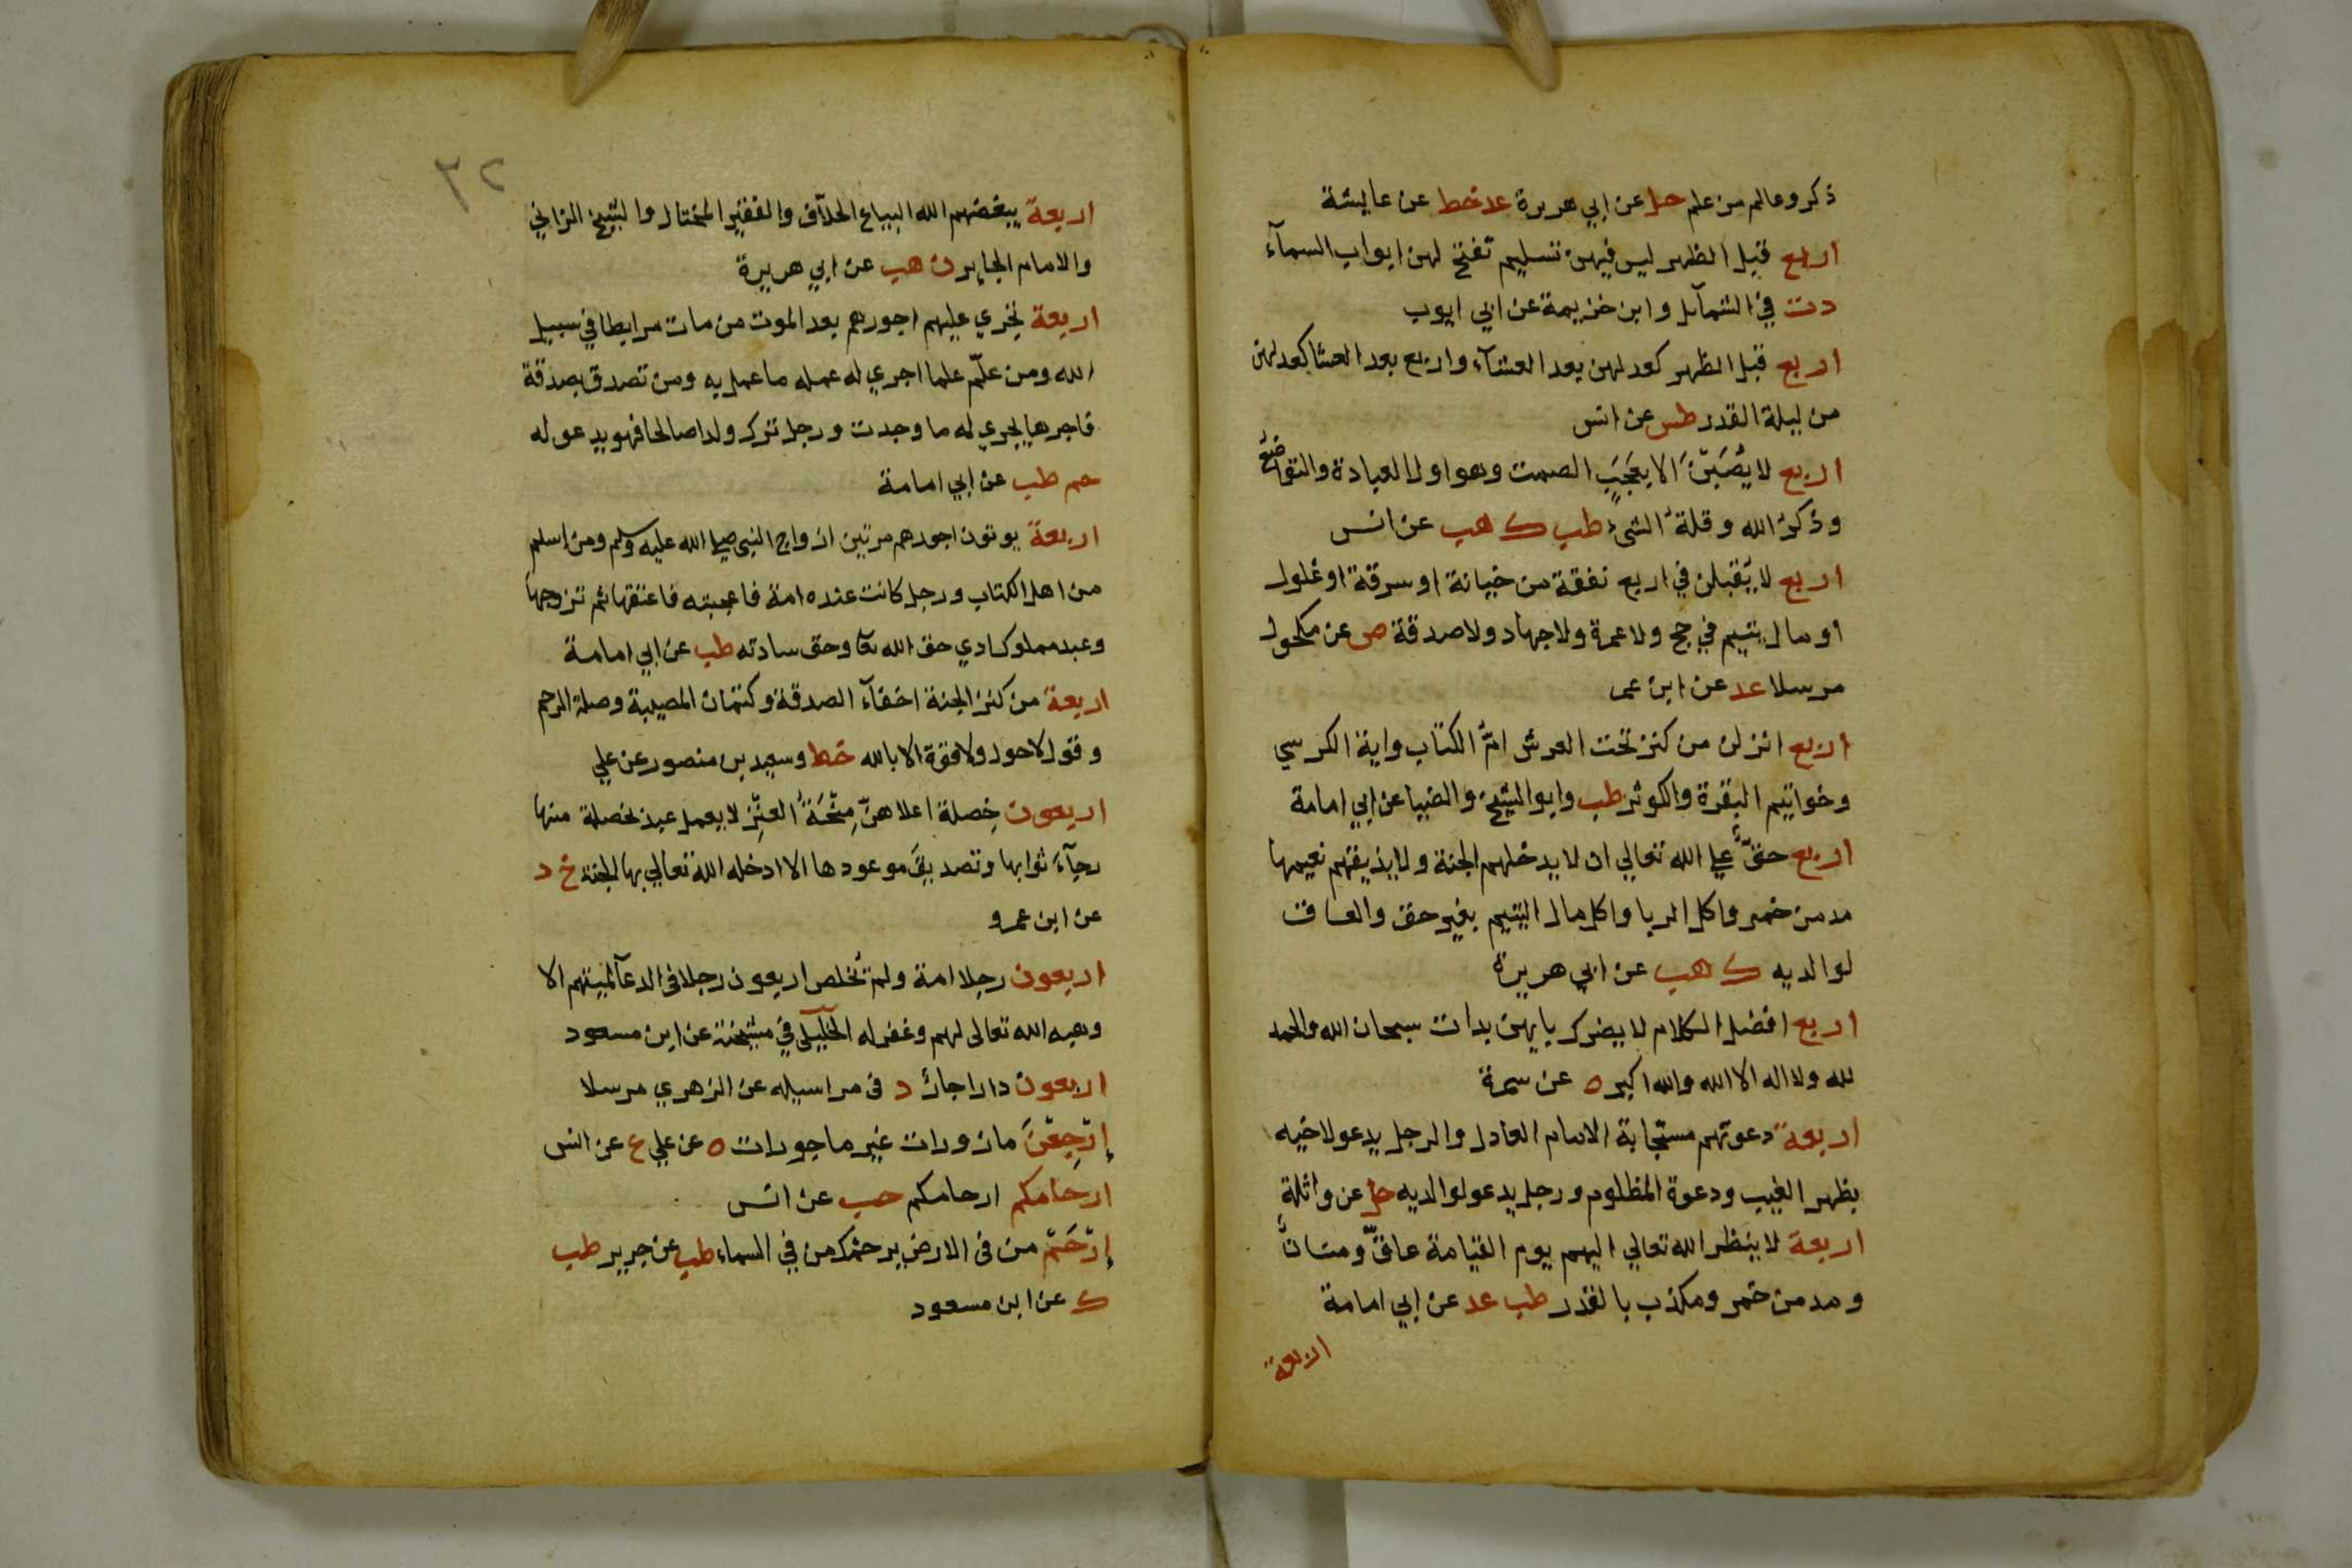 ذكر وعالم من علم حل عن ابي هريرة عد خط عن عايشة
اربع قبل الظهر ليس فيهن تسليم تفتح لهن ابواب السمآء
دت في الشمآيل وابن خزيمة عن ابي ايوب
اربع قبل الظهر كعدلهن بعد العشآء واربع بعد العشا كعدلهن
من ليلة القدر طس عن انس
اربع لا يُصَبْنَ الا بِعَجَبٍ الصمت وهو اول العبادة والتواضعُ
وذكرُ الله وقلةُ الشيء طب ك هب عن انس
اربع لا يُقبلن في اربع نفقة من خيانة او سرقة او غلول
او مال يتيم في حج ولا عمرة ولا جهاد ولا صدقة ص عن مكحول
مرسلا عد عن ابن عمر
اربع انزلن من كنز تحت العرش امُّ الكتاب واية الكرسي
وخواتيم البقرة والكوثر طب وابو الشيخ والضيا عن ابي امامة
اربع حقٌّ علي الله تعالي ان لا يدخلهم الجنة ولا يذيقهم نعيمها
مدمن خمر واكل الربا واكل مال اليتيم بغير حق والعاق
لوالديه ك هب عن ابي هريرة
اربع افضل الكلام لا يضرك بايهن بدات سبحان الله والحمد
لله ولا اله الا الله والله اكبر ه عن سمرة
اربعة دعوتهم مستجابة الامام العادل والرجل يدعو لاخيه
بظهر الغيب ودعوة المظلوم ورجل يدعو لوالديه حل عن واثلة
اربعة لا ينظر الله تعالي اليهم يوم القيامة عاقٌّ ومنانٌ
ومدمن خمر ومكذب بالقدر طب عد عن ابي امامة
اربعة
٣٢
اربعة يبغضهم الله البياع الحلآف والفقير المختال والشيخ الزاني
والامام الجاير ن هب عن ابي هريرة
اربعة تجري عليهم اجورهم بعد الموت من مات مرابطا في سبيل
الله ومن علّم علما اجري له عمله ما عمل به ومن تصدق بصدقة
فاجرها يجري له ما وجدت ورجل ترك ولدا صالحا فهو يدعو له
حم طب عن ابي امامة
اربعة يوتون اجورهم مرتين ازواج النبي صلي الله عليه وسلم ومن اسلم
من اهل الكتاب ورجل كانت عنده امة فاعجبته فاعتقها ثم تزوجها
وعبد مملوك ادي حق الله تعا وحق سادته طب عن ابي امامة
اربعة من كنز الجنة اخفآء الصدقة وكتمان المصيبة وصلة الرحم
وقول لا حول ولا قوة الا بالله خط وسعيد بن منصور عن علي
اربعون خِصلة اعلاهنّ مِنْحَةُ العنْزِ لا يعمل عبد بخصلة منها
رجآءَ ثوابها وتصديقَ موعودها الا ادخله الله تعالي بها الجنة خ د
عن ابن عمرو
اربعون رجلا امة ولم يُخلص اربعون رجلا في الدعآ لميتهم الا
وهبه الله تعالى لهم وغفر له الخليلى في مشيخته عن ابن مسعود
اربعون دارا جارٌ د في مراسيله عن الزهري مرسلا
اِرْجِعْنَ مازورات غير ماجورات ه عن علي ع عن انس
ارحامكم ارحامكم حب عن انس
اِرْحَمْ من في الارض يرحمك من في السماء طب عن جرير طب
ك عن ابن مسعود